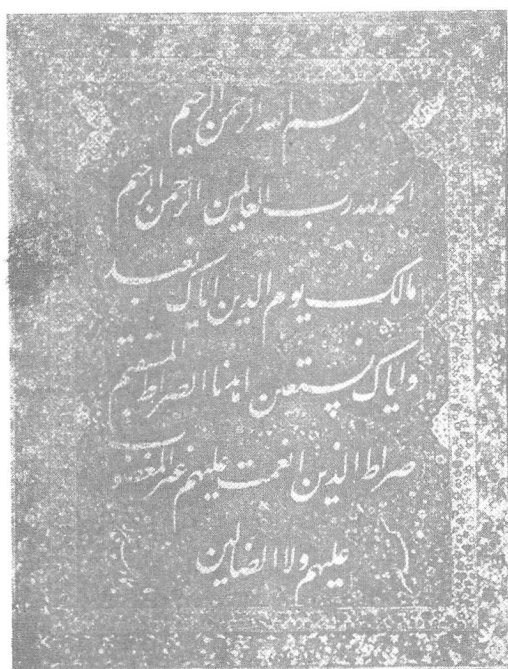 بسم الله الرحمن الرحيم
الحمد لله رب العالمين الرحمن الرحيم
مالک یوم الدین ایاک نعبد
و ایاک نستعین اهدنا الصراط المستقیم
صراط الذین انعمت علیهم غیر المغضوب
علیهم ولا الضالین